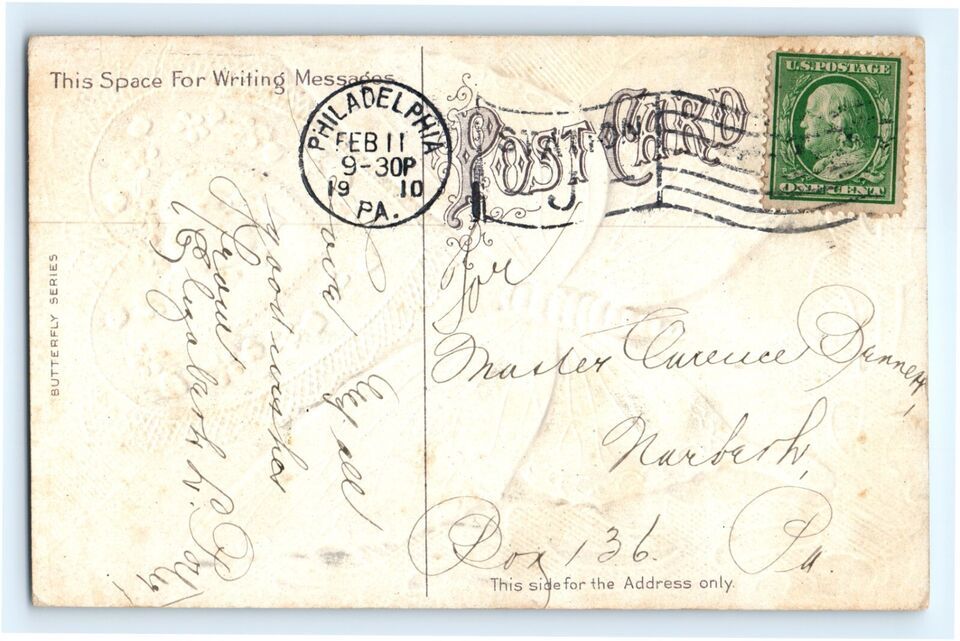 This Space For Writing Messages
BUTTERFLY SERIES
PHILADELPHIA
FEB 11
9-30P
19 10
PA.
POST CARD
U.S. POSTAGE
ONE CENT
For
Master Clarence Bennett,
Narberth,
Box 136. Pa.
This side for the Address only.
all
good wishes
from
Elizabeth L.